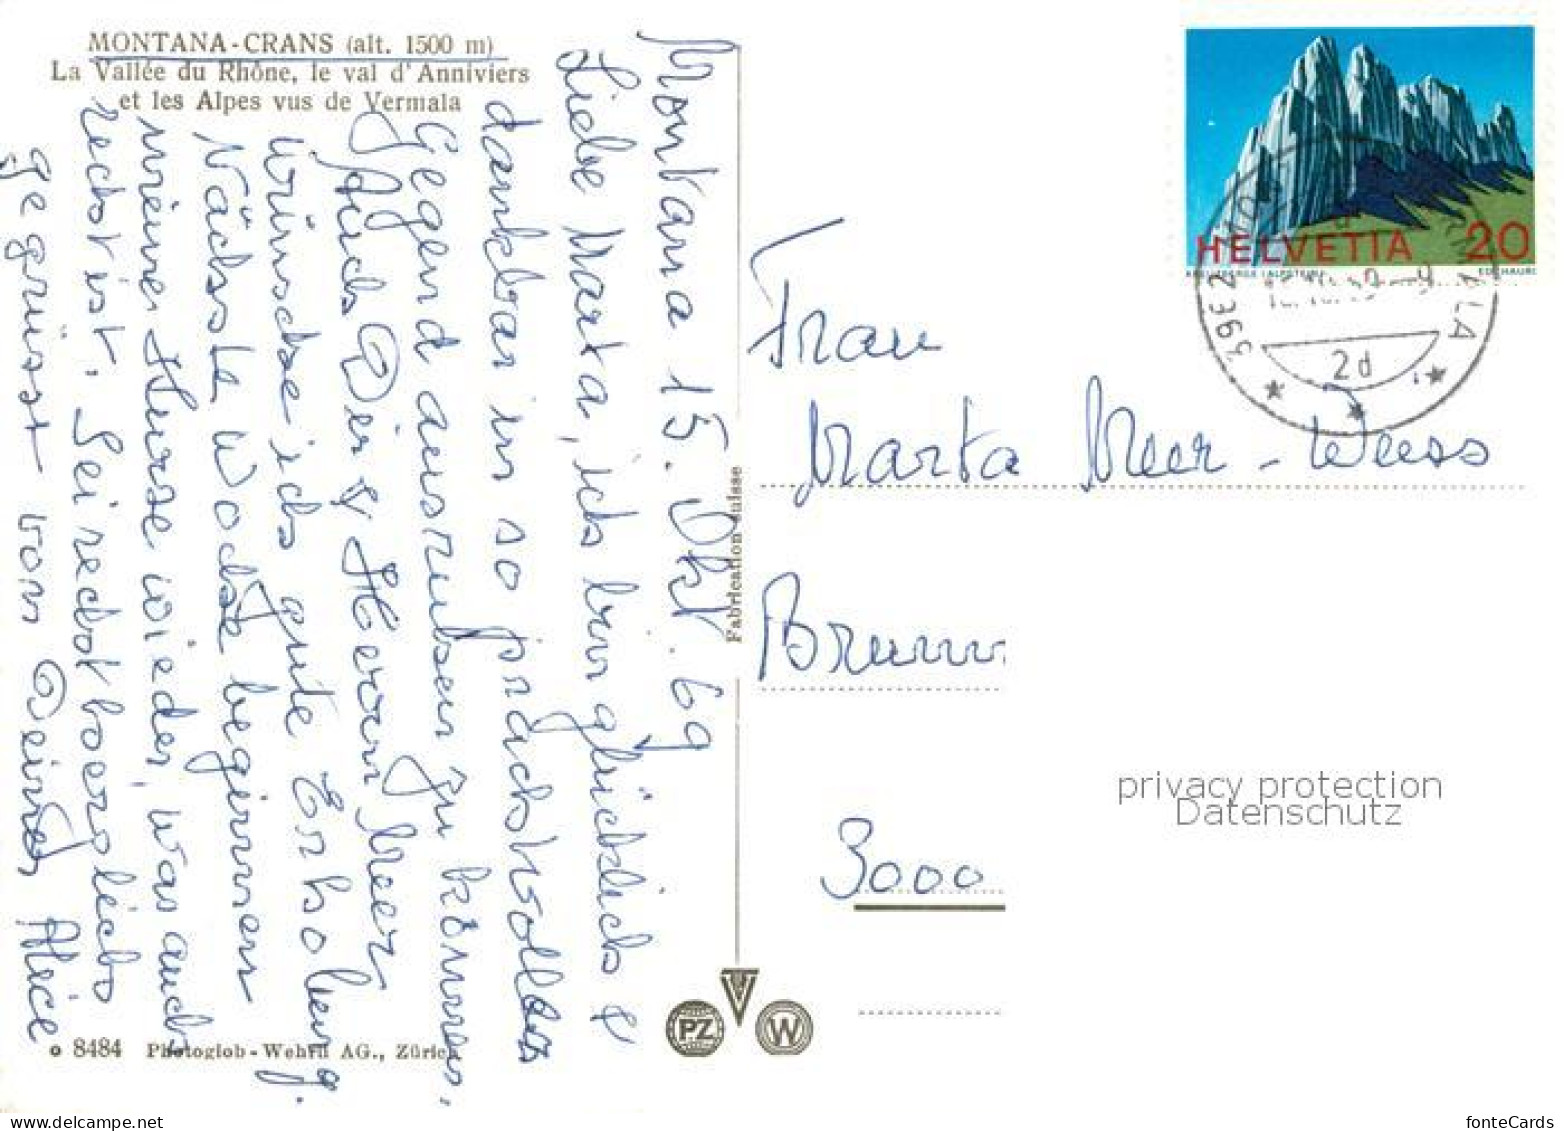 MONTANA-CRANS (alt. 1500 m)
La Vallée du Rhône, le val d'Anniviers
et les Alpes vus de Vermala
Montana 15. Okt. 69
Liebe Marta, ich bin glücklich &
dankbar in so prachtvoller
Gegend ausruhen zu können,
Auch Dir & Herrn Meer
wünsche ich gute Erholung.
Nächste Woche beginnen
meine Kurse wieder, was auch
recht ist. Sei recht herzlich
gegrüsst von Deiner Alice
8484 Photoglob-Wehrli AG., Zürich
Fabrication suisse
PZ
W
HELVETIA 20
2d
Frau
Marta Meer-Weiss
3000
privacy protection
Datenschutz
fonteCards